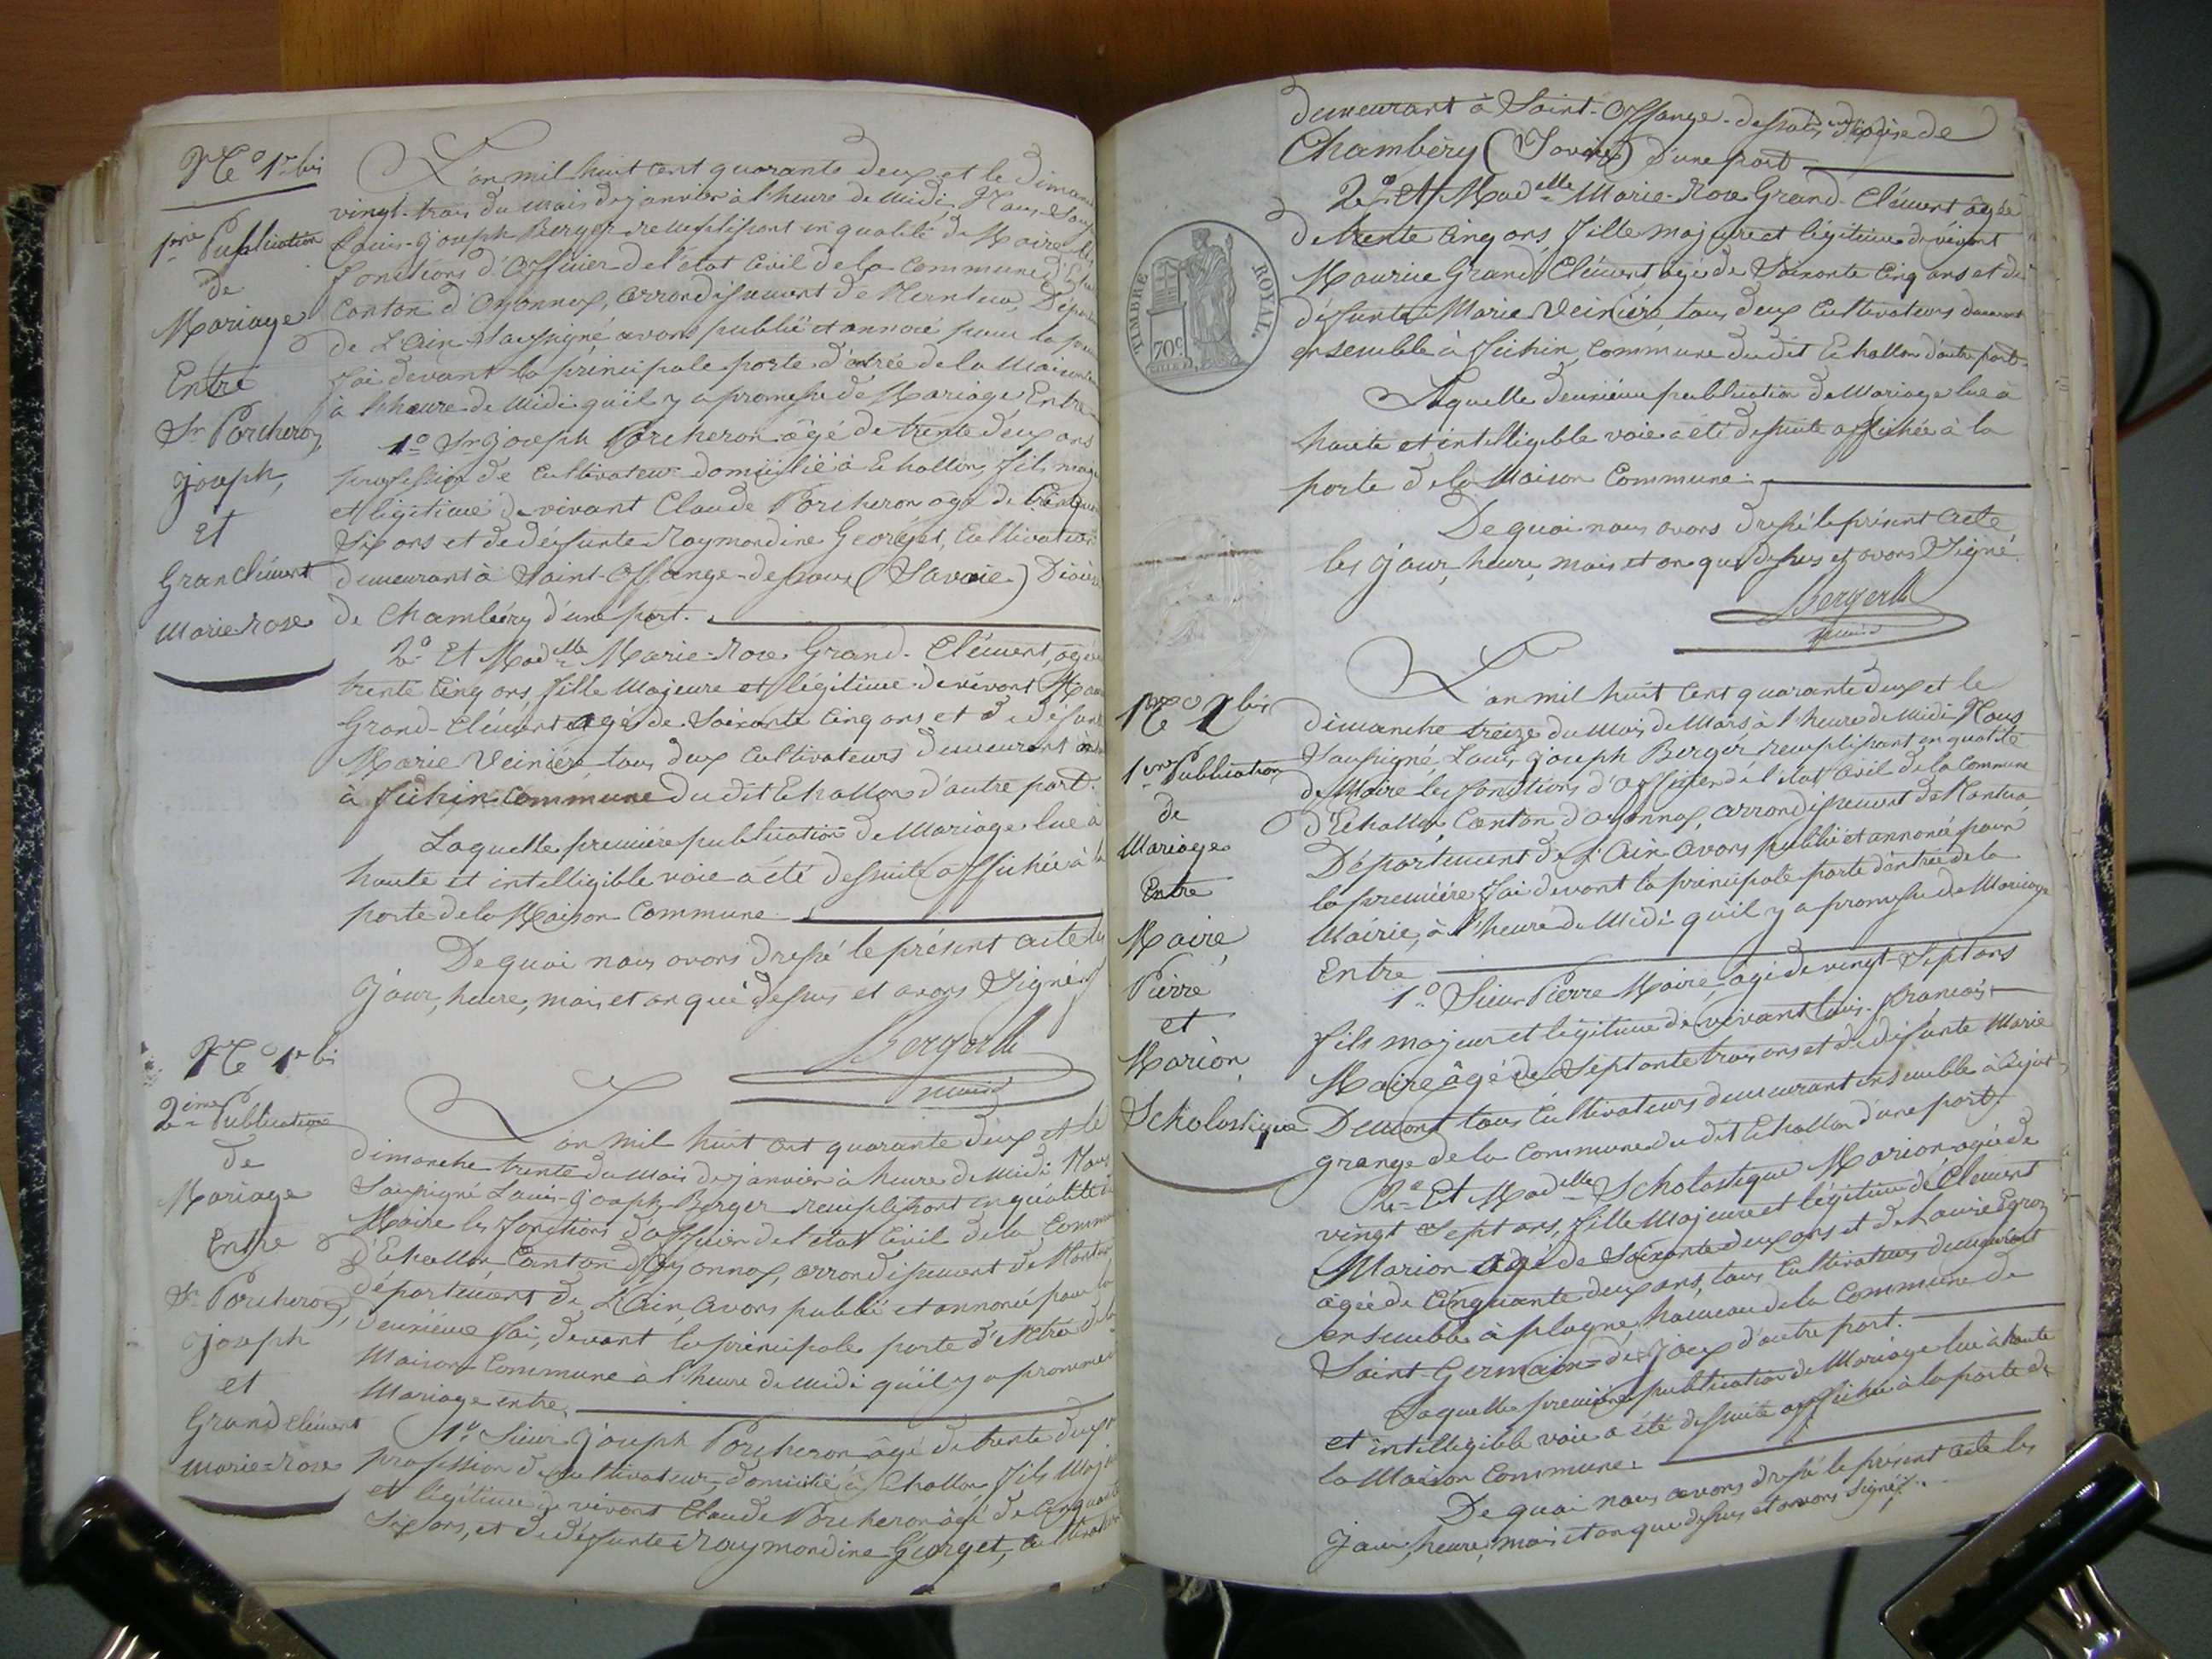 N.º 1er bis
1ère Publication
de
Mariage
Entre
Sr Porcheron
joseph,
et
Granclément
marie rose
L'an mil huit cent quarante deux et le dimanc
vingt-trois du mois de janvier à l'heure de midi Nous Sous
Louis-Joseph Berger remplissant en qualité de Maire les
fonctions d'officier de l'état Civil de la Commune d'Echa
Canton d'Oyonnax, arrondissement de Nantua, Départ
de L'Ain Soussigné avons publié et annoncé pour la prem
fois devant la principale porte d'entrée de la Maison
à l'heure de Midi qu'il y a promesse de Mariage Entre
1º Sr Joseph Porcheron âgé de trente deux ans
profession de Cultivateur domicilié à Echallon, fils maje
et légitime de vivant Claude Porcheron agé de Cinquan
Six ans et de défunte Raymondine Georget, Cultivateur
demeurant à Saint-Offange-dessous (Savoie) Diocèse
de Chambéry d'une part.
2º Et Madelle Marie-Rose Grand-Clément, agée
trente cinq ans, fille Majeure et légitime de vivant Mau
Grand-Clément agé de Soixante cinq ans et de défun
Marie Veinière, tous deux Cultivateurs demeurant
à fichin commune dudit Echallon d'autre part.
Laquelle première publication de Mariage lue à
haute et intelligible voie a été dessuite affichée à la
porte de la Maison Commune
De quoi nous avons dressé le présent acte les
Jour, heure, mois et an que dessus et avons Signé
Berger
maire
N.º 1er bis
2ème Publication
de
Mariage
Entre
Sr Porcheron,
joseph
et
Grand clément
marie-rose
L'an mil huit cent quarante deux et le
dimanche trente du mois de janvier à heure de midi Nous
Soussigné Louis-Joseph Berger remplissant en qualité de
Maire les fonctions d'officier de l'état Civil de la Commu
d'Echallon Canton d'Oyonnax, arrondissement de Nantua
département de L'Ain, avons publié et annoncé pour la
deuxième fois, devant la principale porte d'entrée de la
Maison Commune à l'heure de midi qu'il y a promesse
Mariage entre
1º Sieur Joseph Porcheron âgé de trente deux
profession de cultivateur, domicilié à Echallon fils Maj
et légitime de vivant Claude Porcheron âgé de Cinquante
Six ans, et de défunte Raymondine Georget, cultivateur
demeurant à Saint-Offange-dessous, diocèse de
Chambéry (Savoie) d'une part
2º Et Madelle Marie-Rose Grand-Clément âgée
de trente cinq ans, fille majeure et légitime de vivant
Maurice Grand Clément agé de Soixante Cinq ans et de
défunte Marie Veinière, tous deux Cultivateurs demeurant
ensemble à fichin, commune dudit Echallon d'autre part
TIMBRE ROYAL
70 c
Laquelle deuxième publication de Mariage lue à
haute et intelligible voie a été dessuite affichée à la
porte de la Maison Commune
De quoi nous avons dressé le présent acte
les jour, heure, mois et an que dessus et avons Signé
Berger
maire
N.º 2 bis
1ère Publication
de
Mariage
Entre
Maire
Pierre
et
Marion
Scholastique
L'an mil huit Cent quarante deux et le
dimanche treize du Mois de Mars à l'heure de Midi Nous
Soussigné Louis Joseph Berger remplissant en qualité
de Maire les fonctions d'officier de l'état Civil de la Commune
d'Echallon Canton d'oyonnax, arrondissement de Nantua
Département de L'Ain Avons publié et annoncé pour
la première fois devant la principale porte d'entrée de la
Mairie, à l'heure de Midi qu'il y a promesse de Mariage
Entre
1º Sieur Pierre Maire, agé de vingt-Sept ans
fils majeur et légitime de vivant Louis-françois
Maire âgé de Septante trois ans et de défunte Marie
Demont tous Cultivateurs demeurant ensemble à
grange de la Commune dudit Echallon d'une part.
2º Et Madelle Scholastique Marion agée de
vingt Sept ans, fille Majeure et légitime de Clément
Marion agé de Soixante deux ans et de Laurie Egroz
âgée de Cinquante deux ans, tous Cultivateurs demeurant
ensemble à plagne, hameau de la Commune de
Saint-Germain-de-Joux d'autre part.
Laquelle première publication de Mariage lue à haute
et intelligible voie a été dessuite affichée à la porte de
la Maison Commune.
De quoi nous avons dressé le présent acte les
Jour, heure, mois et an que dessus et avons signé